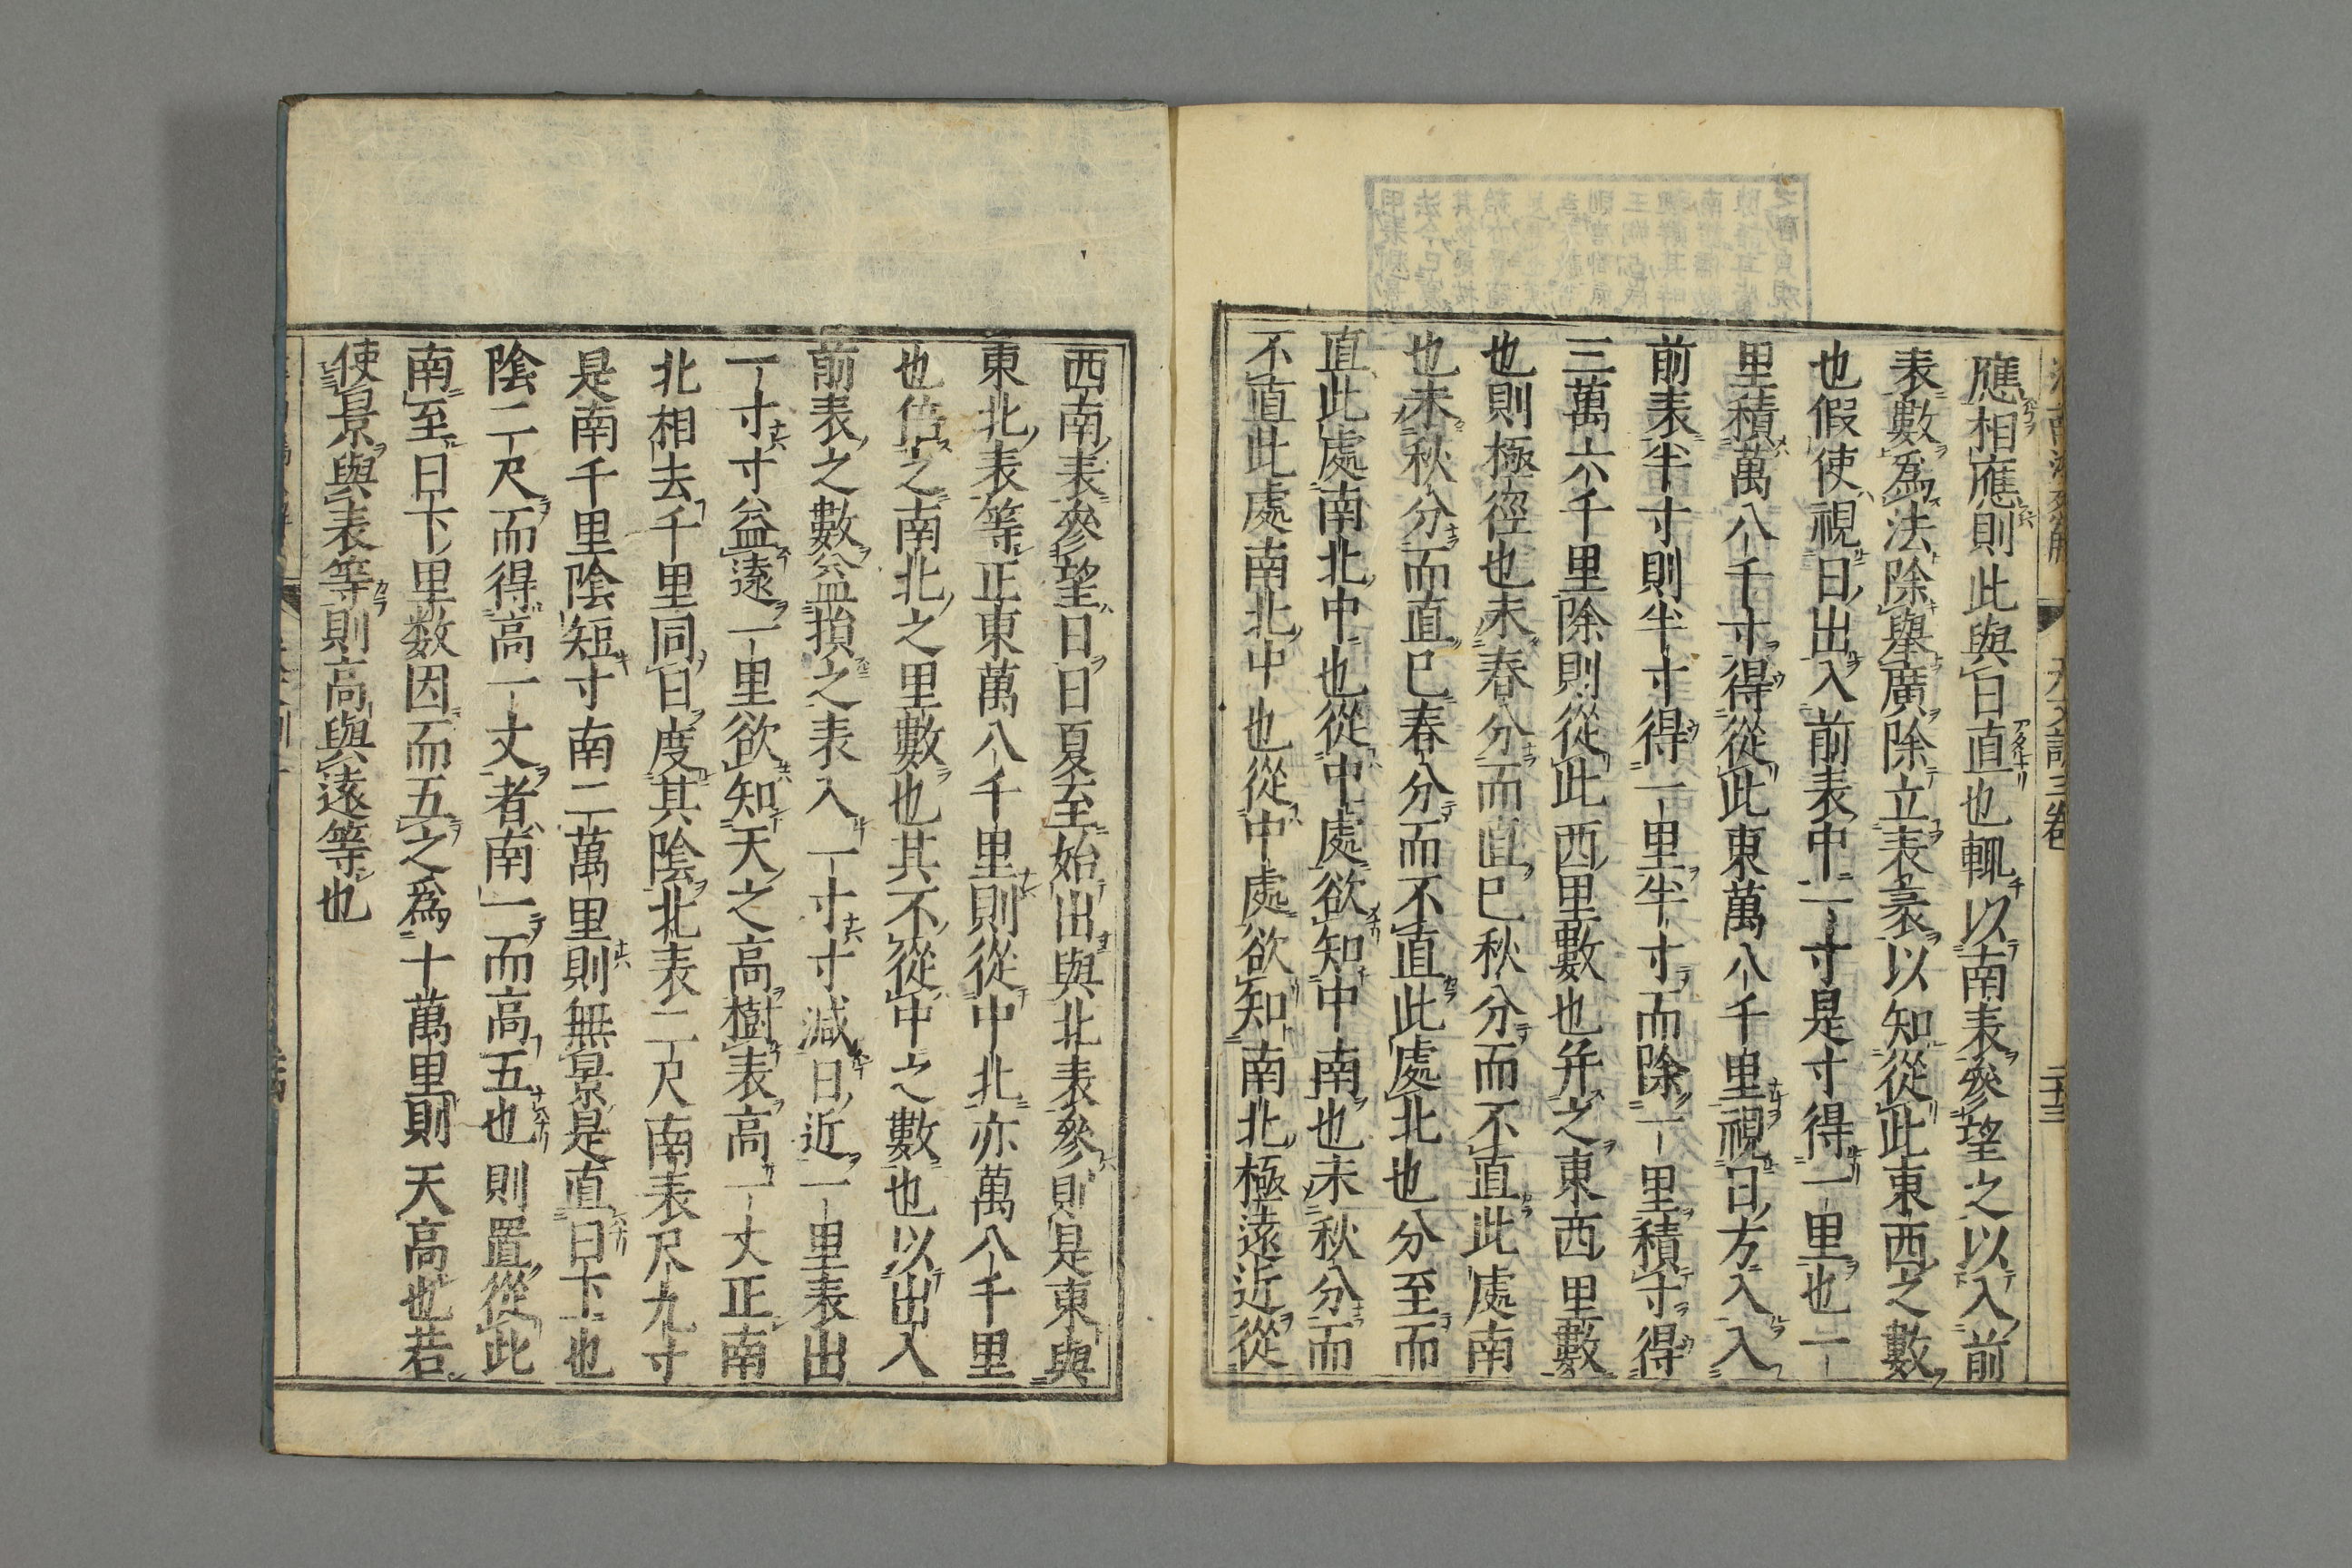 應相應則此與日直也輒以南表參望之以入前
表數爲法除舉廣除立表袤以知從此東西之數
也假使視日出入前表中一寸是寸得一里也一
里積萬八千寸得從此東萬八千里視日方入入
前表半寸則半寸得一里半寸而除一里積寸得
三萬六千里除則從此西里數也并之東西里數
也則極徑也未春分而直已秋分而不直此處南
也未秋分而直已春分而不直此處北也分至而
直此處南北中也從中處欲知中南也未秋分而
不直此處南北中也從中處欲知南北極遠近從
西南表參望日日夏至始出與北表參則是東與
東北表等正東萬八千里則從中北亦萬八千里
也倍之南北之里數也其不從中之數也以出入
前表之數益損之表入一寸寸減日近一里表出
一寸寸益遠一里欲知天之高樹表高一丈正南
北相去千里同日度其陰北表二尺南表尺九寸
是南千里陰短寸南二萬里則無景是直日下也
陰二尺而得高一丈者南一而高五也則置從此
南至日下里数因而五之爲十萬里則天高也若
使景與表等則高與遠等也